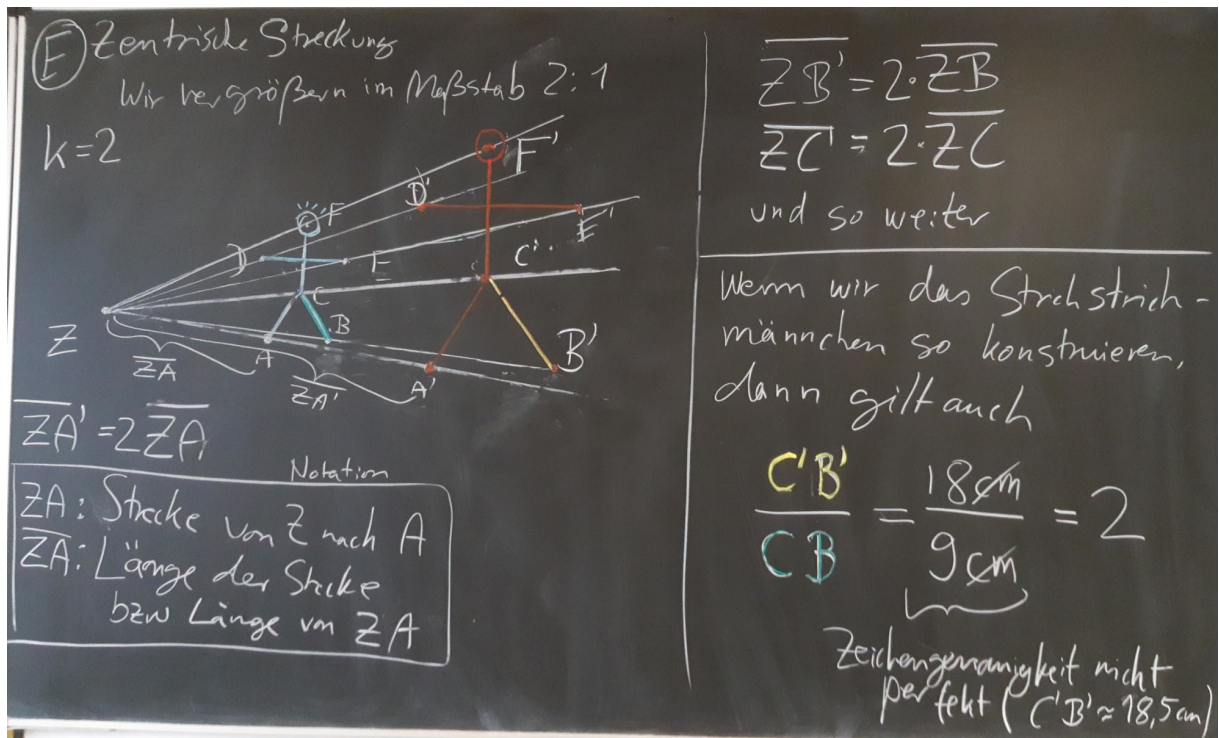 E Zentrische Streckung
Wir vergrößern im Maßstab 2:1
k=2
F'
D'
F
E'
D
E
C'
C
Z
B
B'
A
A'
ZA
ZA'
ZA' = 2 ZA
Notation
ZA: Strecke von Z nach A
ZA: Länge der Stecke
bzw Länge von ZA
ZB' = 2·ZB
ZC' = 2·ZC
und so weiter
Wenn wir das Strichstrich-
männchen so konstruieren,
dann gilt auch
C'B'/CB = 18cm/9cm = 2
Zeichengenauigkeit nicht
perfekt (C'B' ≈ 18,5cm)